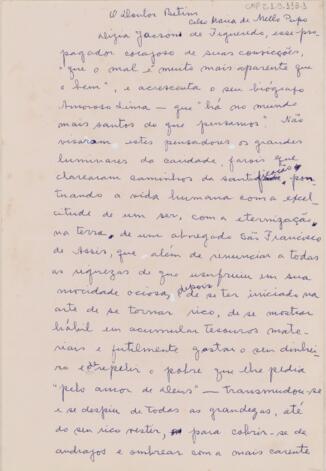 CMP 2.1.9.198-1
O Doutor Betim
Celso Maria de Mello Pupo
Dizia Jackson de Figueiredo, esse pro-
pagador corajoso de suas convicções,
"que o mal é muito mais aparente que
o bem", e acrescenta o seu biógrafo
Amoroso Lima — que "há no mundo
mais santos do que pensamos". Não
visaram estes pensadores os grandes
luminares da caridade, faróis que
clarearam caminhos da santificação, pon-
tuando a vida humana com a excel-
citude de um ser, com a eternização,
na terra, de um abnegado São Francisco
de Assis, que além de renunciar a todas
as riquezas de que usufruiu em sua
mocidade ociosa, depois de se ter iniciado na
arte de se tornar rico, de se mostrar
hábil em acumular tesouros mate-
riais e futilmente gastar o seu dinhei-
ro e de repelir o pobre que lhe pedia
"pelo amor de Deus" — transmudou-se
e se despiu de todas as grandezas, até
do seu rico vestir, para cobrir-se de
andrajos e ombrear com a mais carente